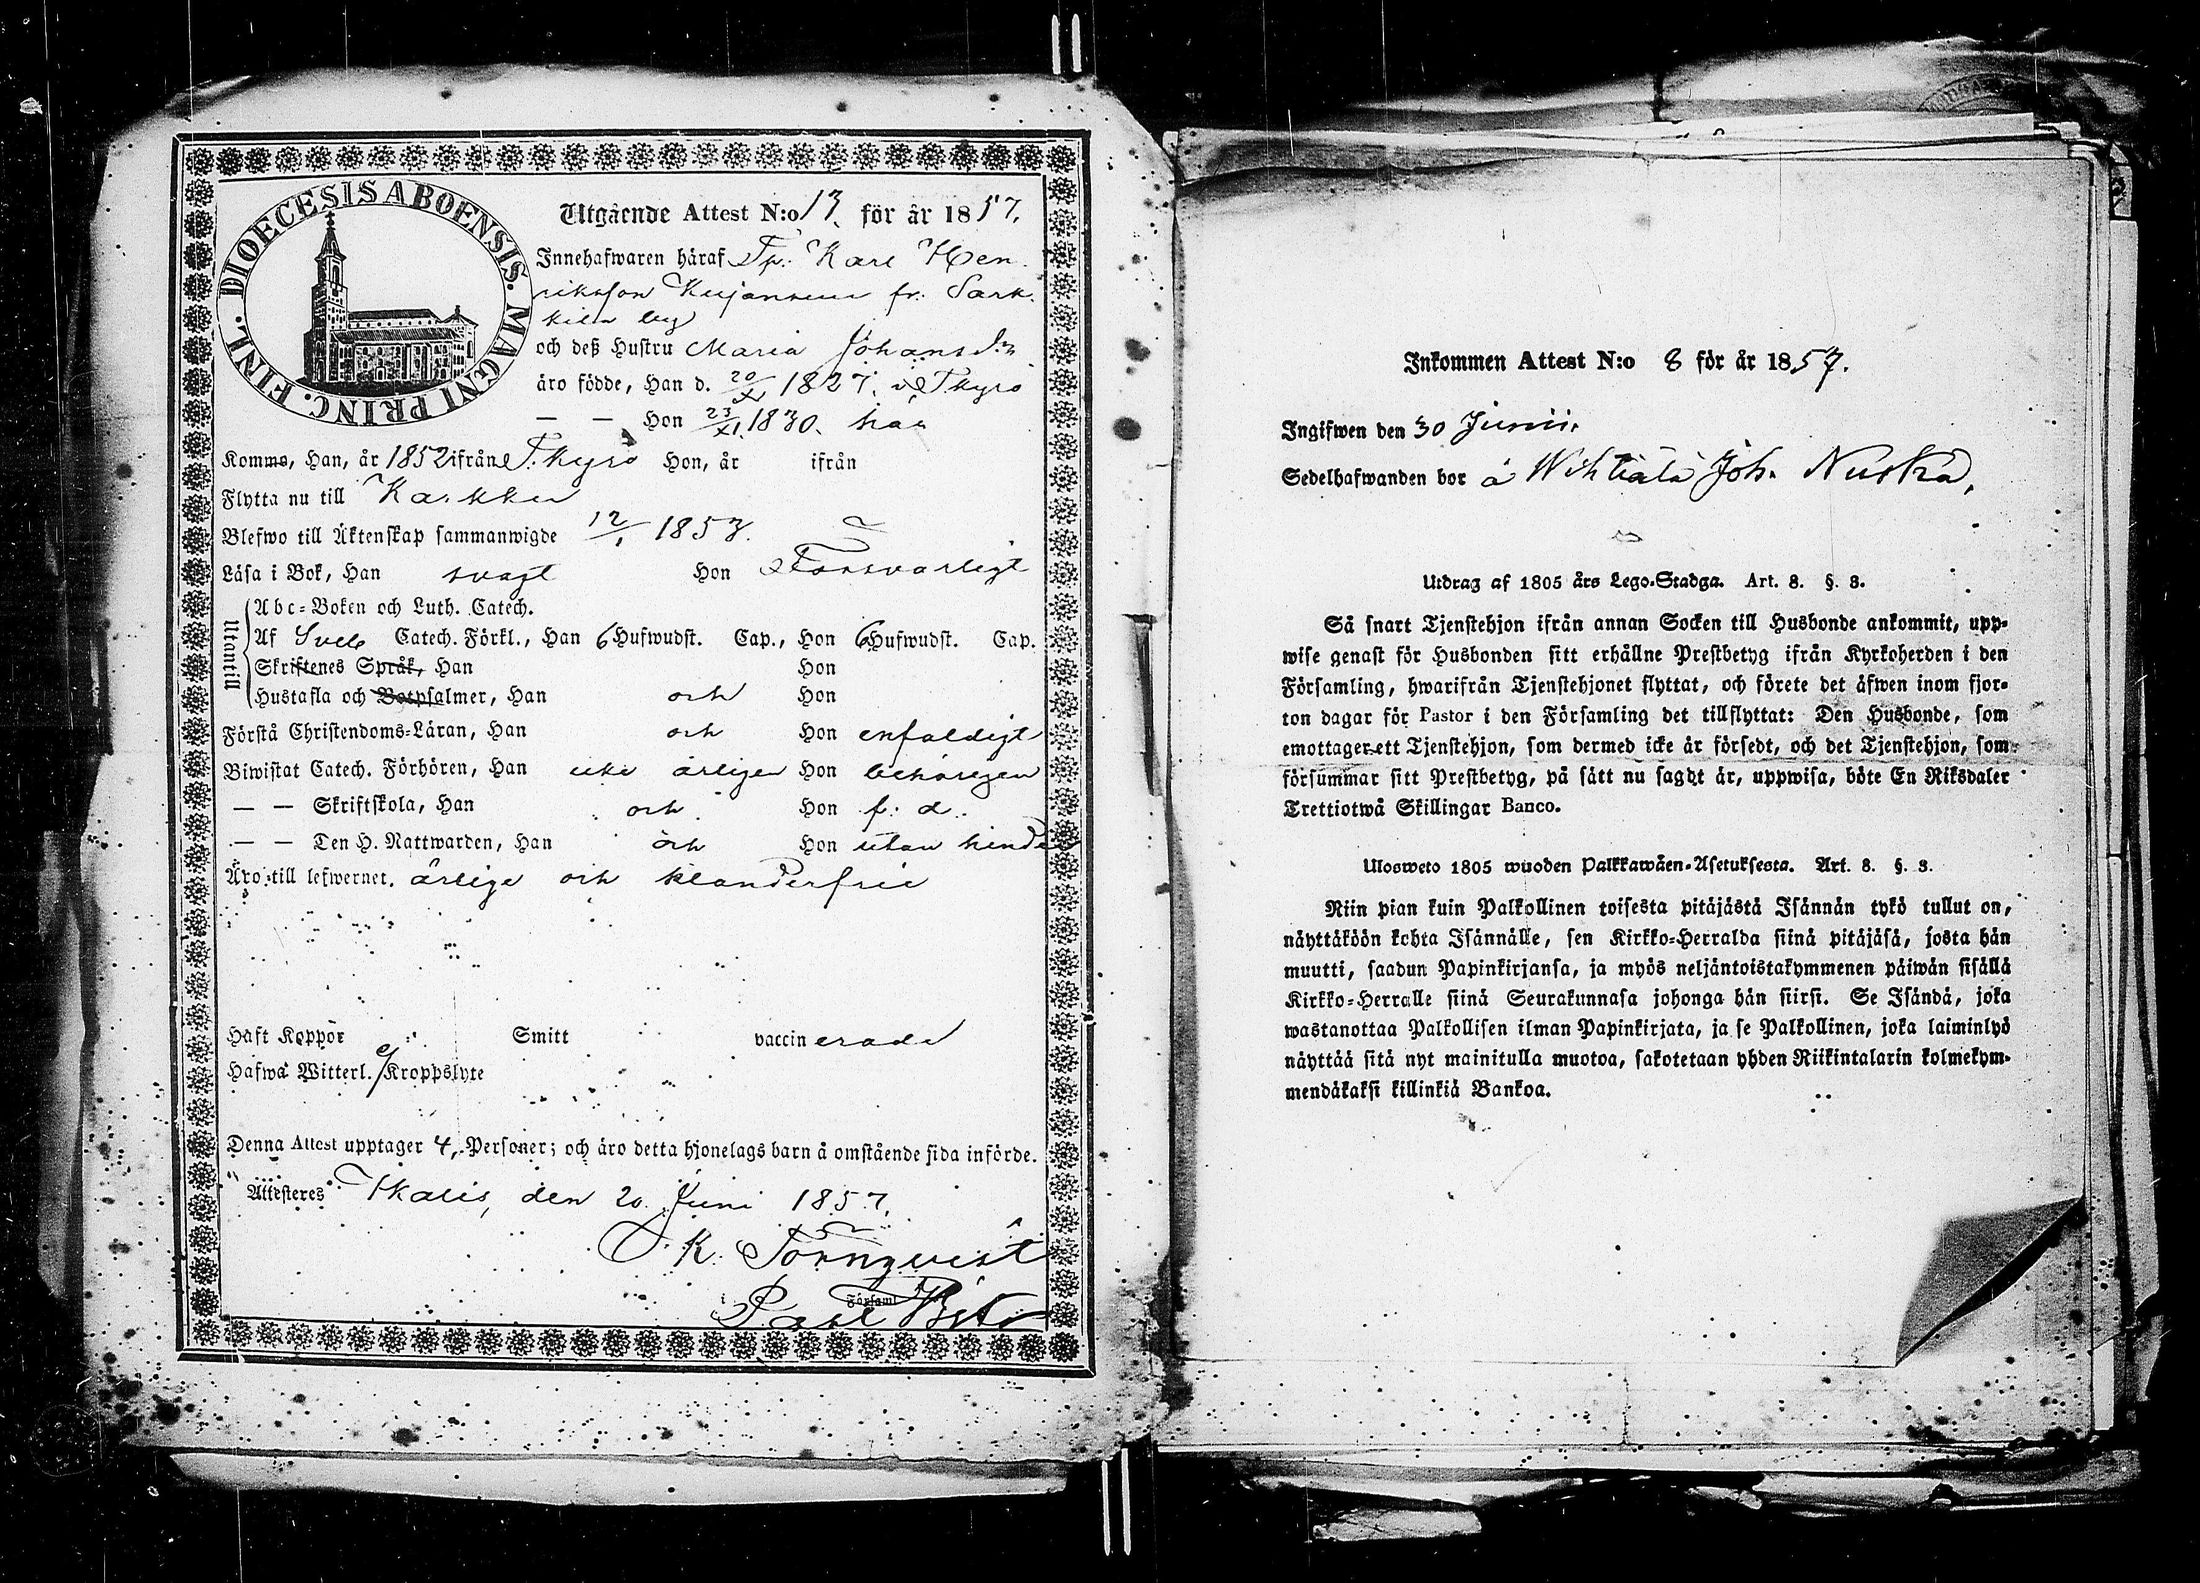 DIOECESIS ABOENSIS. MAGNI PRINC. FINL.
Utgående Attest N:o 13. för år 1857.
Innehafwaren häraf Tp. Karl Hen
riksson Kujansuu fr. Sark
kila by
och deß Hustru Maria Johansdr
äro födde, Han d. 20/X 1827. i T.kyro
— — Hon 23/XI. 1830. här
Komme, Han, år 1852 ifrån T.kyro Hon, år ifrån
Flytta nu till Karkku
Blefwo till Äktenskap sammanwigde 12/1 1853.
Läsa i Bok, Han svagt Hon Försvarligt
Utantill
Abc-Boken och Luth. Catech.
Af Sveb Catech. Förkl., Han 6 Hufwudst. Cap., Hon 6 Hufwudst. Cap.
Skriftenes Språk, Han Hon
Hustafla och Botpsalmer, Han och Hon
Förstå Christendoms-Läran, Han och Hon enfaldigt
Biwistat Catech. Förhören, Han icke årligen Hon behörigen
— — Skriftskola, Han och Hon f. d.
— — Den H. Nattwarden, Han och Hon utan hinder
Äro till lefwernet. ärlige och klanderfrie
Haft Koppor Smitt vaccinerade
Hafwa Witterl. ej Kroppslyte
Denna Attest upptager 4, Personer; och äro detta hjonelags barn å omstående sida införde.
Attesteres Ikalis, den 20. Juni 1857.
K. Törnqvist
Församl
Past
Inkommen Attest N:o 8 för år 1857.
Ingifwen den 30 Junii.
Sedelhafwanden bor å Wihtiälä Joh. Nuska,
Utdrag af 1805 års Lego-Stadga. Art. 8. §. 3.
Så snart Tjenstehjon ifrån annan Socken till Husbonde ankommit, upp-
wise genast för Husbonden sitt erhållne Prestbetyg ifrån Kyrkoherden i den
Församling, hwarifrån Tjenstehjonet flyttat, och förete det äfwen inom fjor-
ton dagar för Pastor i den Församling det tillflyttat: Den Husbonde, som
emottager ett Tjenstehjon, som dermed icke är försedt, och det Tjenstehjon, som
försummar sitt Prestbetyg, på sätt nu sagdt är, uppwisa, böte En Riksdaler
Trettiotwå Skillingar Banco.
Ulosweto 1805 wuoden Palkkawäen-Asetuksesta. Art. 8. §. 3.
Niin pian kuin Palkollinen toisesta pitäjästä Isännän tykö tullut on,
näyttäköön kohta Isännälle, sen Kirkko-Herralda siinä pitäjäsä, josta hän
muutti, saadun Papinkirjansa, ja myös neljäntoistakymmenen päiwän sisällä
Kirkko-Herralle siinä Seurakunnasa johonga hän siirsi. Se Isändä, joka
wastanottaa Palkollisen ilman Papinkirjata, ja se Palkollinen, joka laiminlyö
näyttää sitä nyt mainitulla muotoa, sakotetaan yhden Riikintalarin kolmekym-
mendäkaksi killinkiä Bankoa.